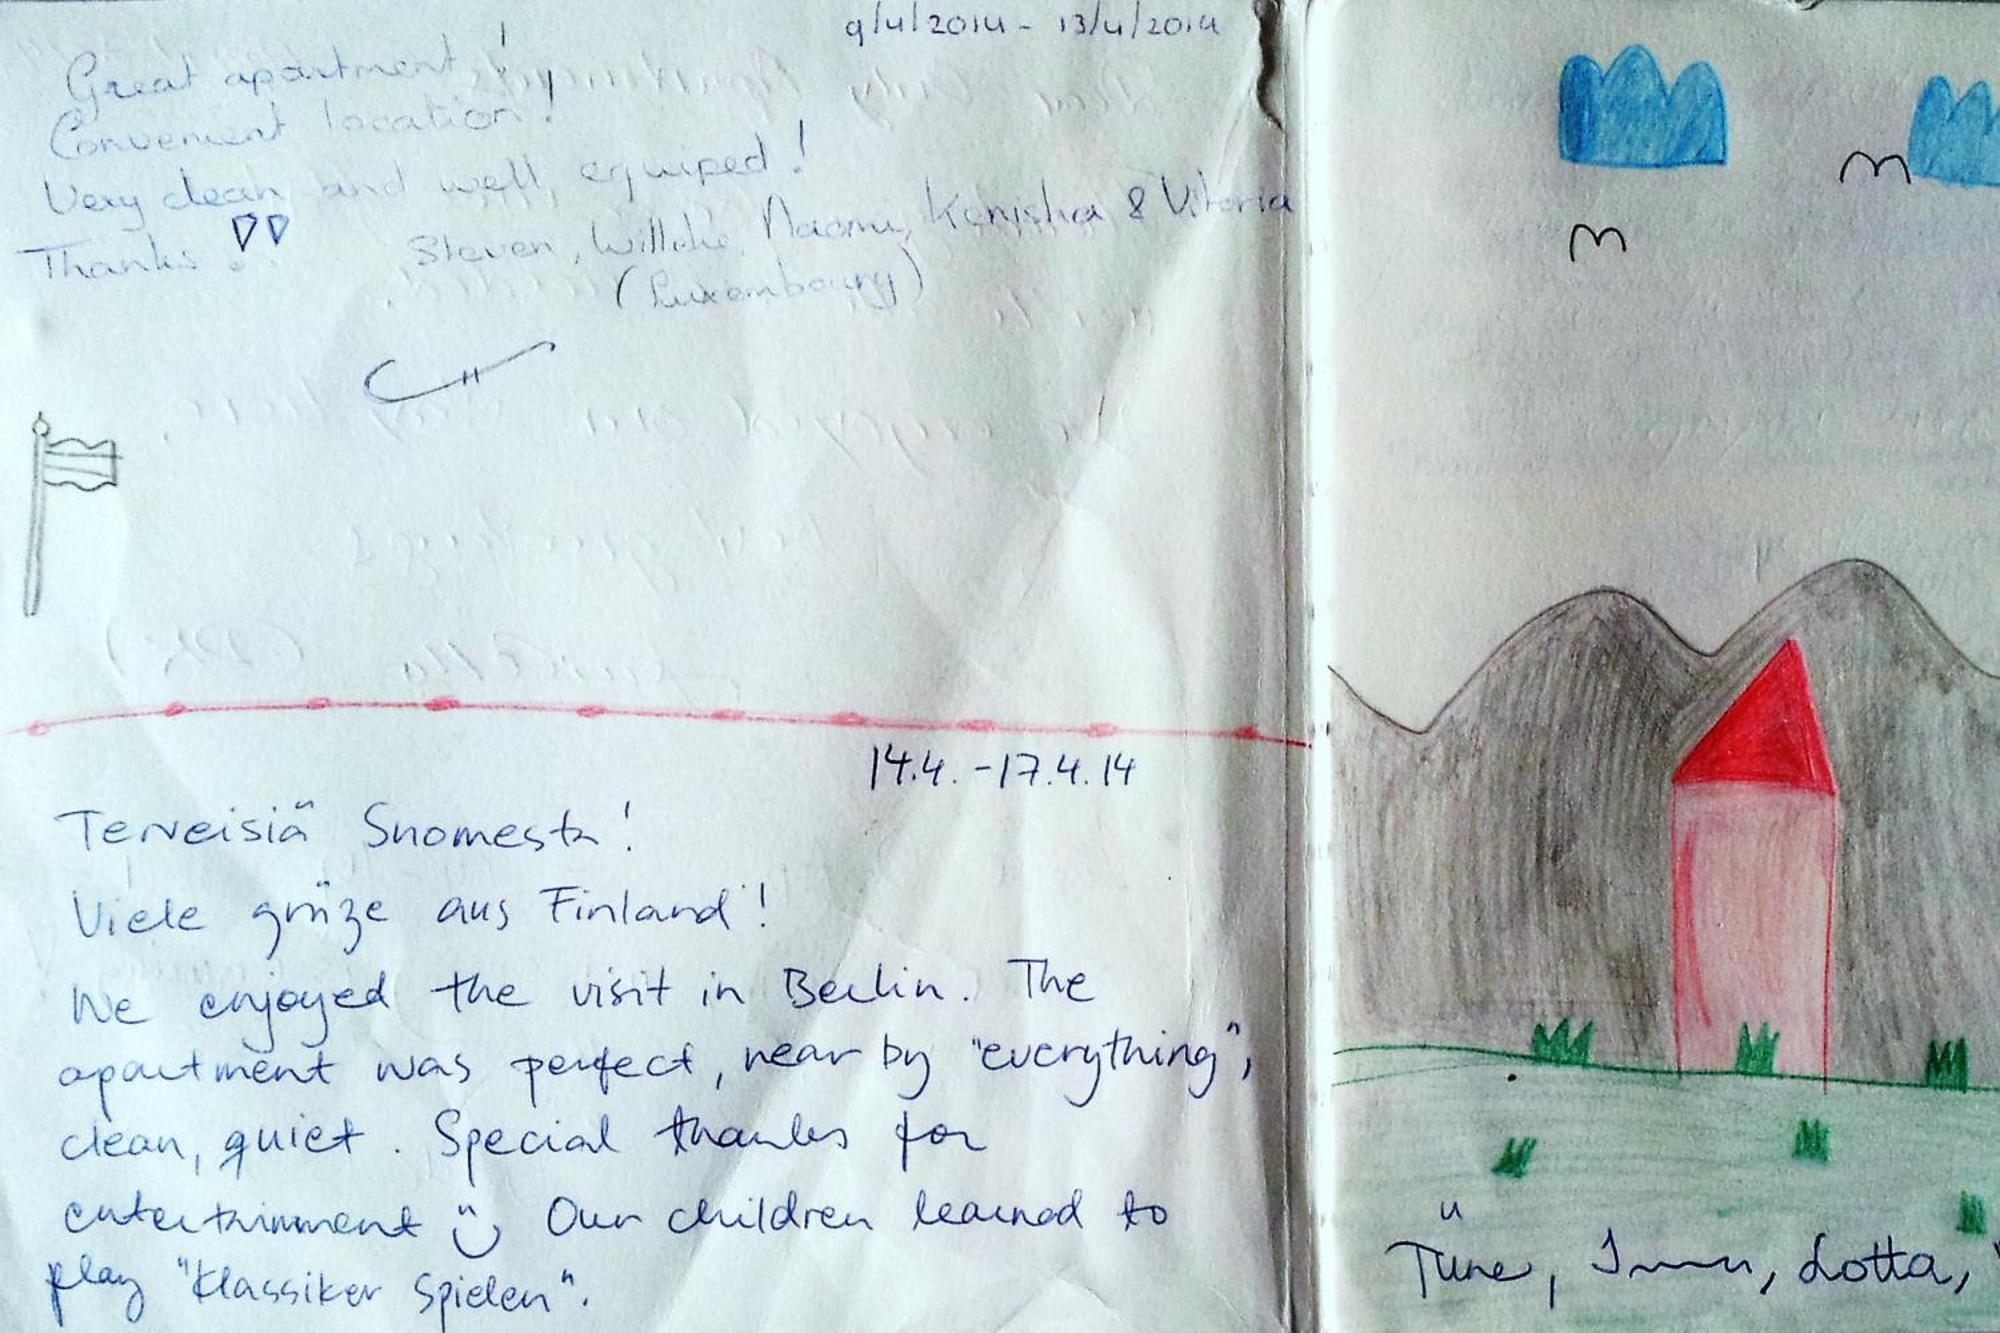 9/4/2014 - 13/4/2014
Great apartment!
Convenient location!
Very clean and well equiped!
Thanks!!
Steven, Naomi, Kenisha & Vitoria
(Luxembourg)
14.4. - 17.4.14
Terveisiä Suomesta!
Viele grüze aus Finland!
We enjoyed the visit in Berlin. The
apartment was perfect, near by "everything",
clean, quiet. Special thanks for
entertainment Our children learned to
play "Klassiker Spielen".
Lotta,